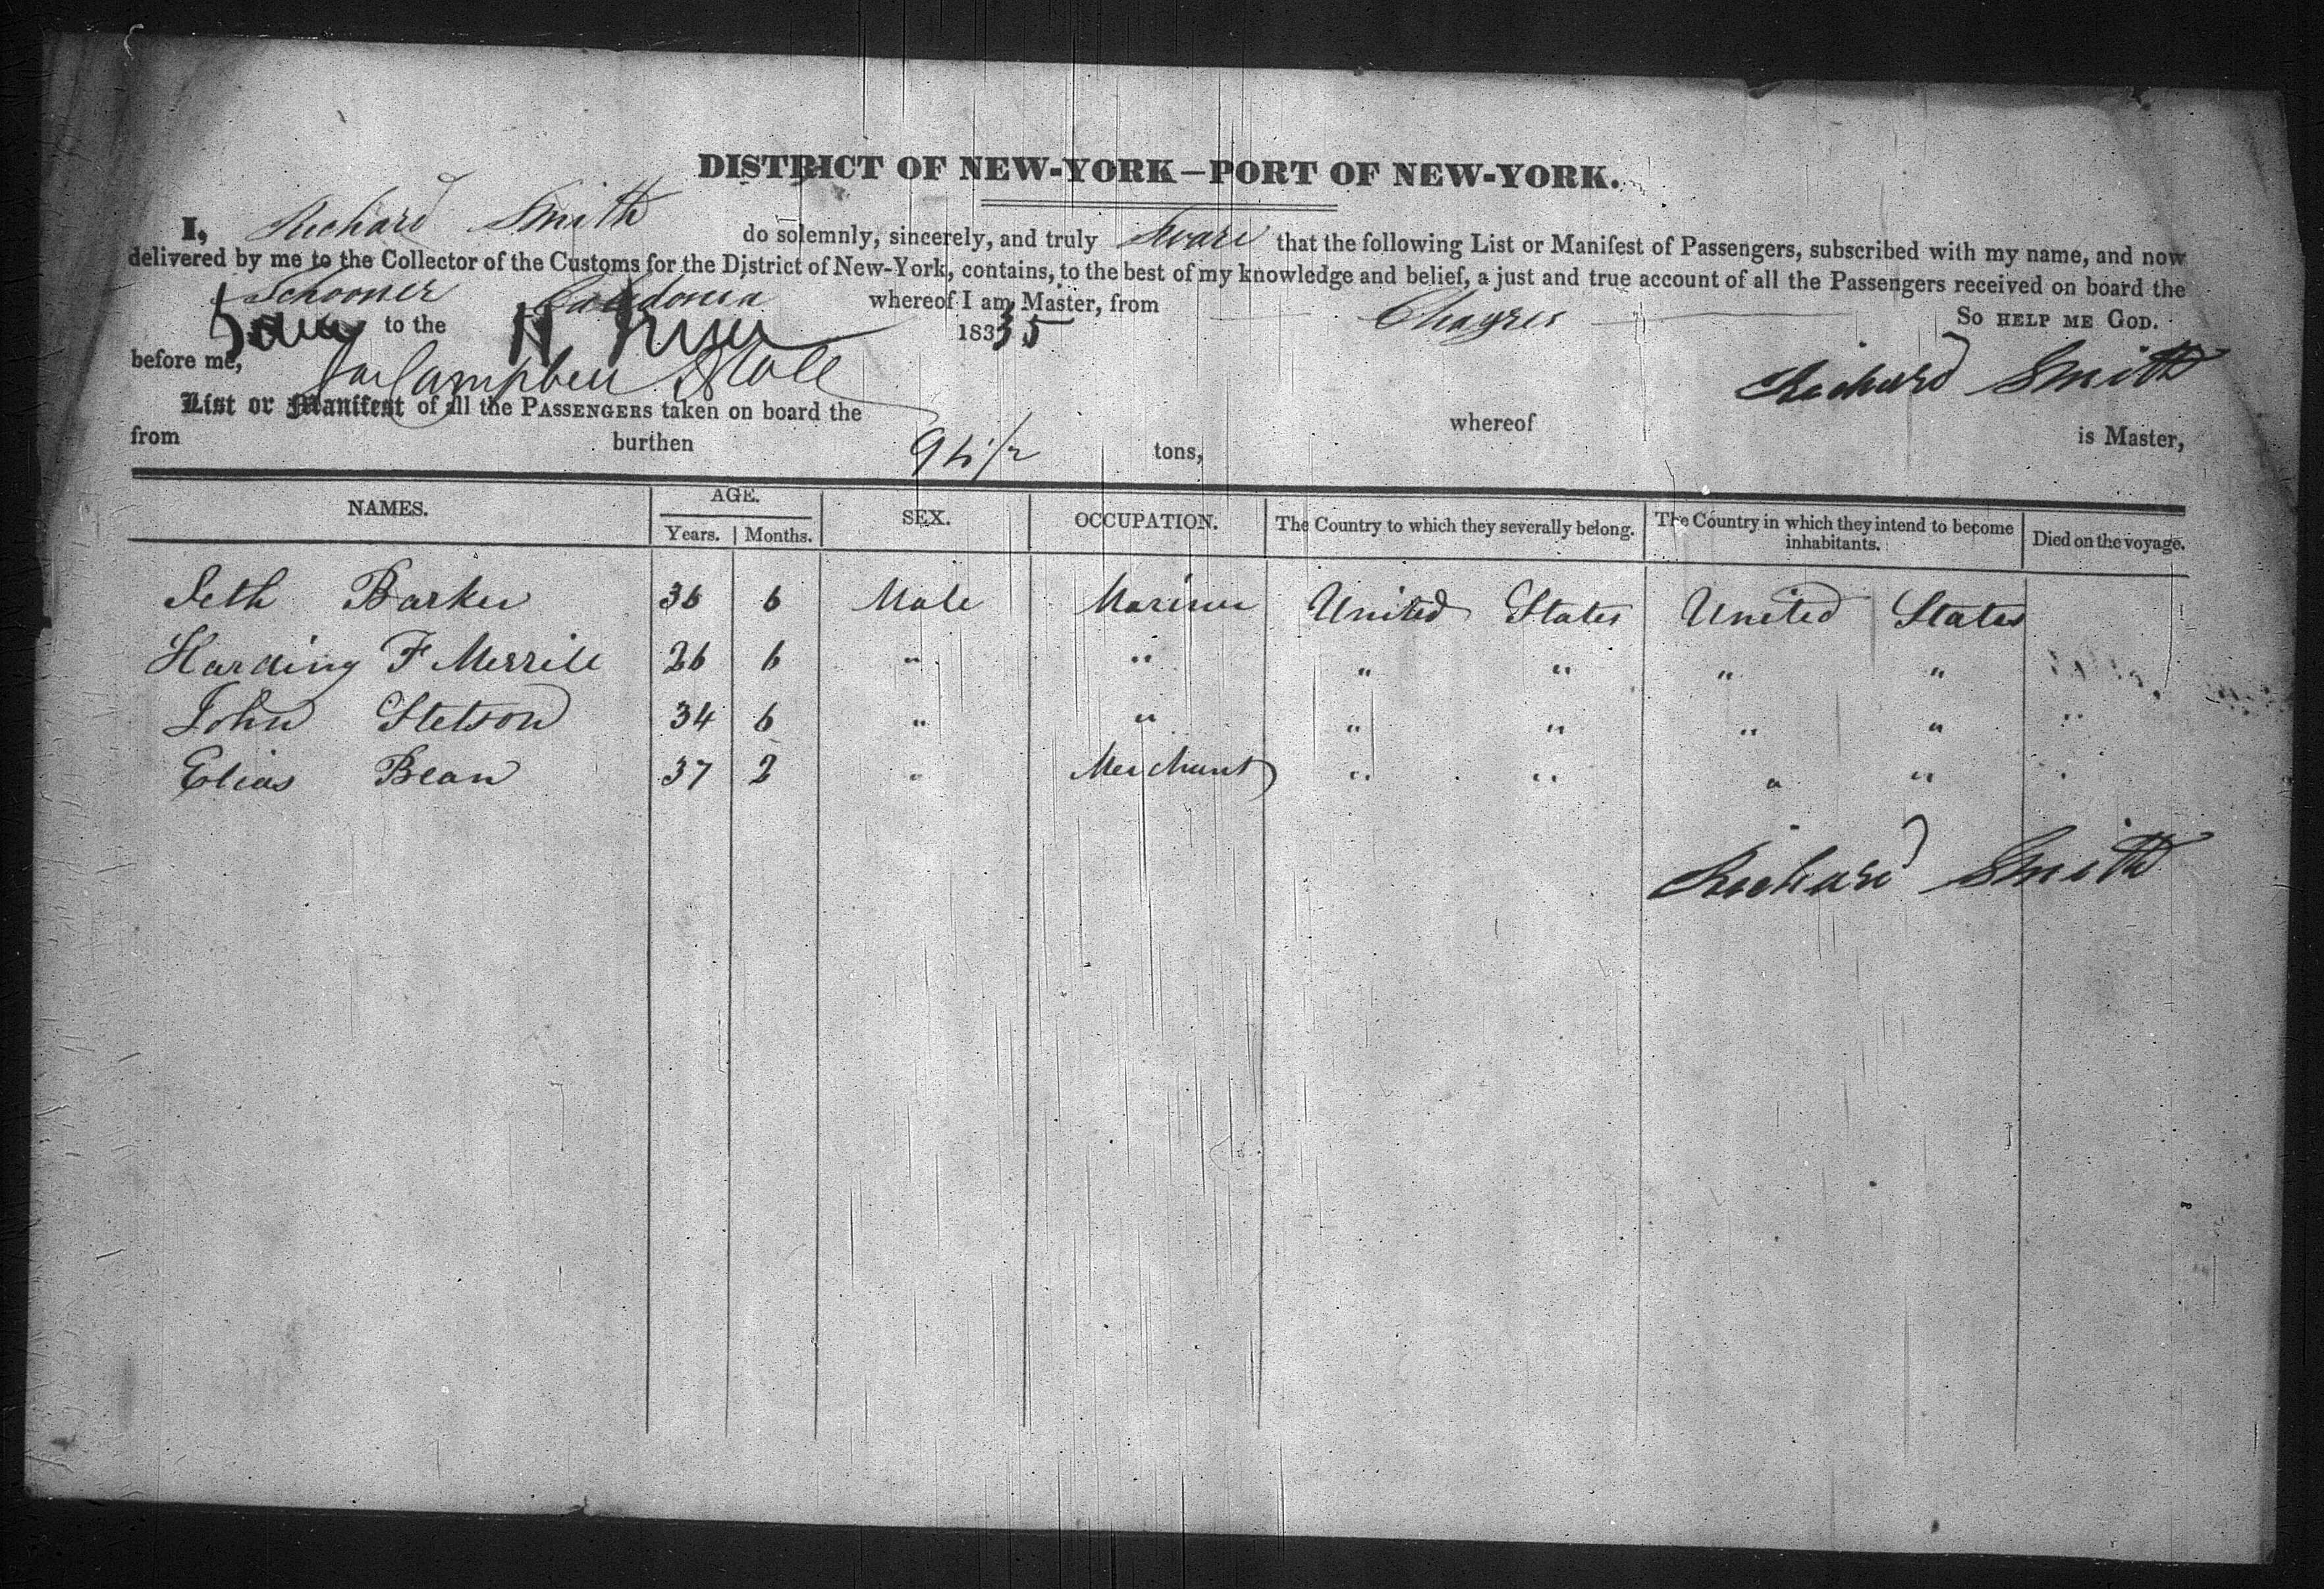 DISTRICT OF NEW-YORK—PORT OF NEW-YORK.
I, Richard Smith do solemnly, sincerely, and truly Sware that the following List or Manifest of Passengers, subscribed with my name, and now
delivered by me to the Collector of the Customs for the District of New-York, contains, to the best of my knowledge and belief, a just and true account of all the Passengers received on board the
Schooner Caledonia whereof I am Master, from Chagres So HELP ME GOD.
to the 1835
before me, Campbell Richard Smith
List or Manifest of all the PASSENGERS taken on board the whereof is Master,
from burthen tons,
NAMES. AGE. SEX. OCCUPATION. The Country to which they severally belong. The Country in which they intend to become inhabitants. Died on the voyage.
Years. Months.
Seth Barker 36 6 Male Mariner United States United States
Harding F Merrill 26 6 " " " " " "
John Stetson 34 6 " " " " " "
Elias Bean 37 2 " Merchant " " " "
Richard Smith